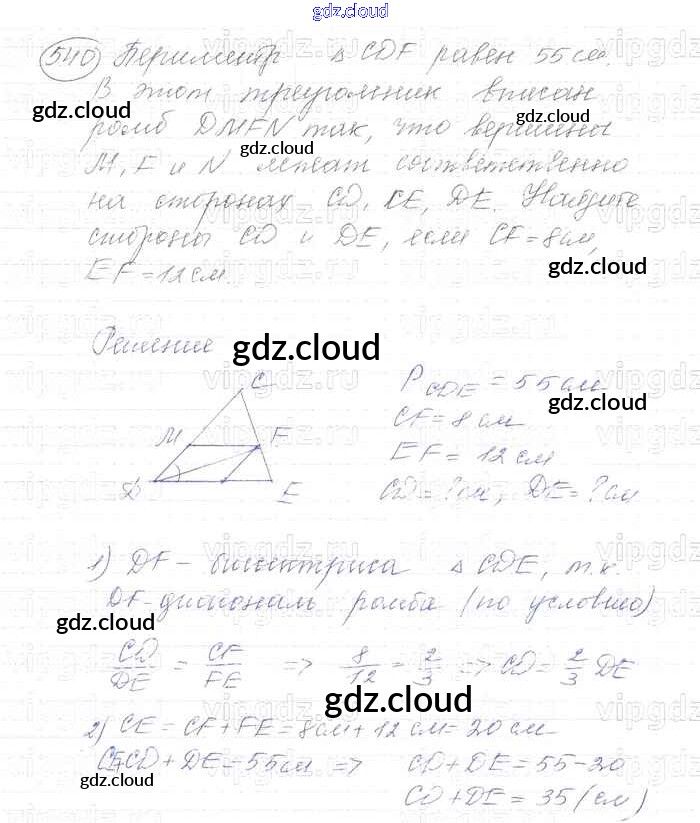 gdz.cloud
540 Периметр △ CDF равен 55 см.
В этот треугольник вписан
gdz.cloud
ромб DMFN так, что вершины
gdz.cloud
M, F и N лежат соответственно
на сторонах CD, CE, DE. Найдите
стороны CD и DE, если CF = 8 см,
gdz.cloud
EF = 12 см.
Решение
gdz.cloud
C
M F
D E
P CDE = 55 см
gdz.cloud
CF = 8 см
EF = 12 см
CD = ? см, DE = ? см
1) DF - биссектриса △ CDE, т.к.
DF - диагональ ромба (по условию)
gdz.cloud
CD/DE = CF/FE => 8/12 = 2/3 => CD = 2/3 DE
gdz.cloud
2) CE = CF + FE = 8 см + 12 см = 20 см
CE+CD + DE = 55 см => CD + DE = 55 - 20
gdz.cloud
CD + DE = 35 (см)
gdz.cloud